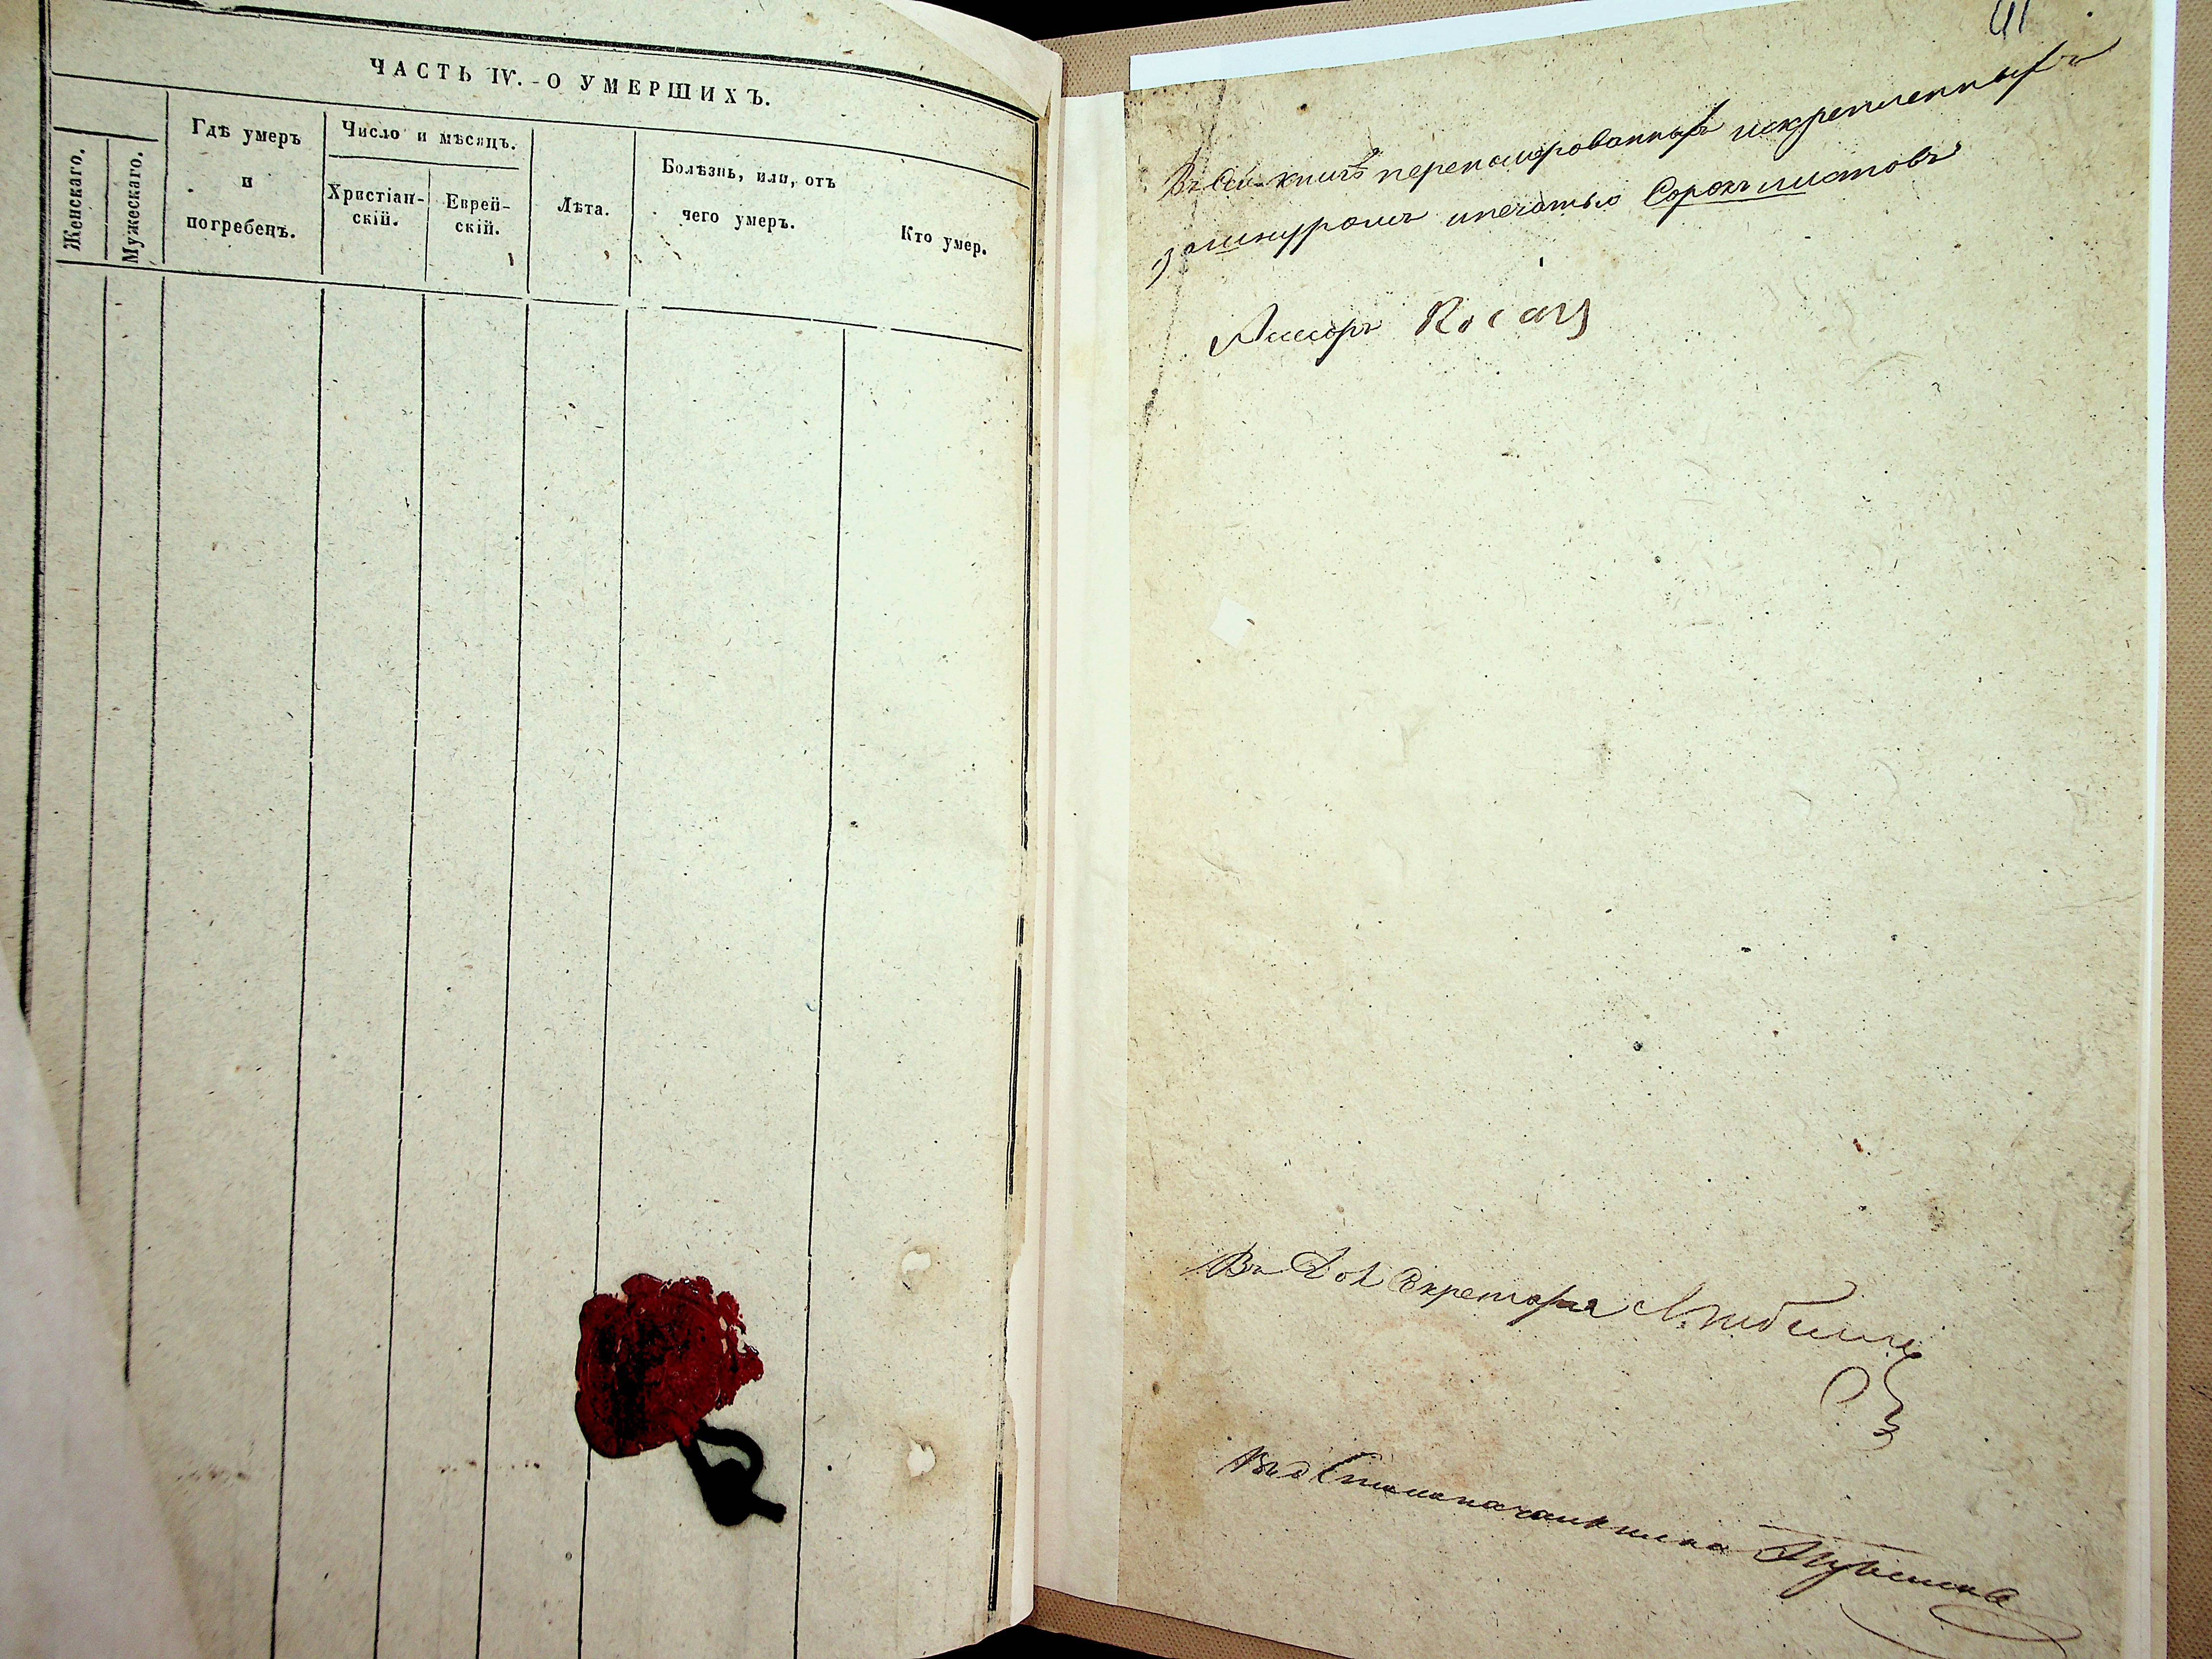 ЧАСТЬ IV. - О УМЕРШИХЪ.
Женскаго.
Мужескаго.
Гдѣ умеръ
и
погребенъ.
Число и мѣсяцъ.
Христіан-
скій.
Еврей-
скій.
Лѣта.
Болѣзнь, или, отъ
чего умеръ.
Кто умер.
41
Въ сей книгѣ переномерованныхъ искрепленныхъ
зашнуромъ ипечатью Сорокъ листовъ
Въ Дол Секретаря
Столоначальника